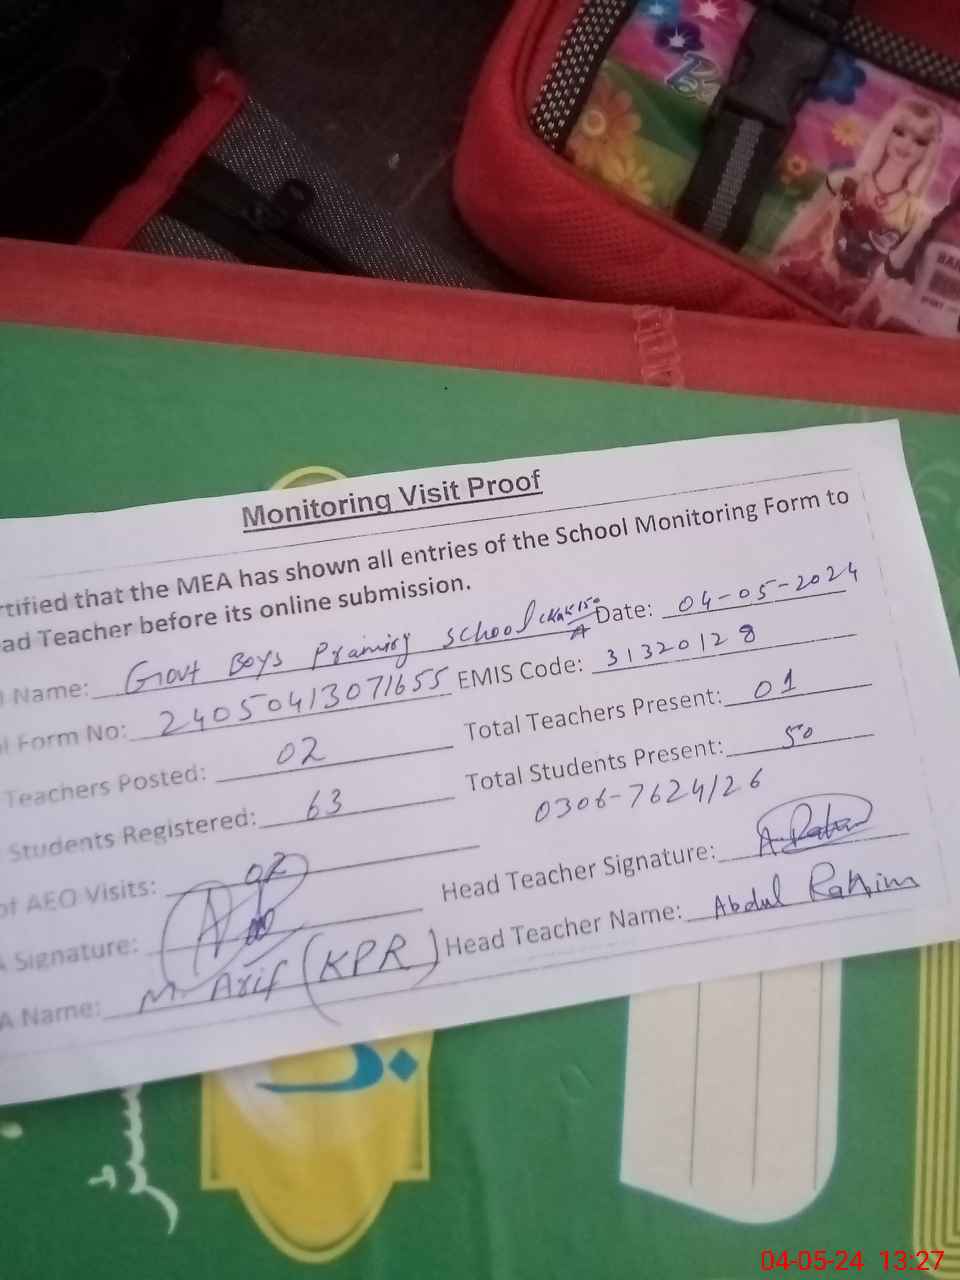 Monitoring Visit Proof
rtified that the MEA has shown all entries of the School Monitoring Form to
ad Teacher before its online submission.
Name: Govt Boys Pramiry School Chak 150 A Date: 04-05-2024
Form No: 24050413071655 EMIS Code: 31320128
Teachers Posted: 02 Total Teachers Present: 01
Students Registered: 63 Total Students Present: 50
0306-7624126
of AEO Visits: 02 Head Teacher Signature:
A Signature:
A Name: M. Arif (KPR) Head Teacher Name: Abdul Rahim
04-05-24 13:27